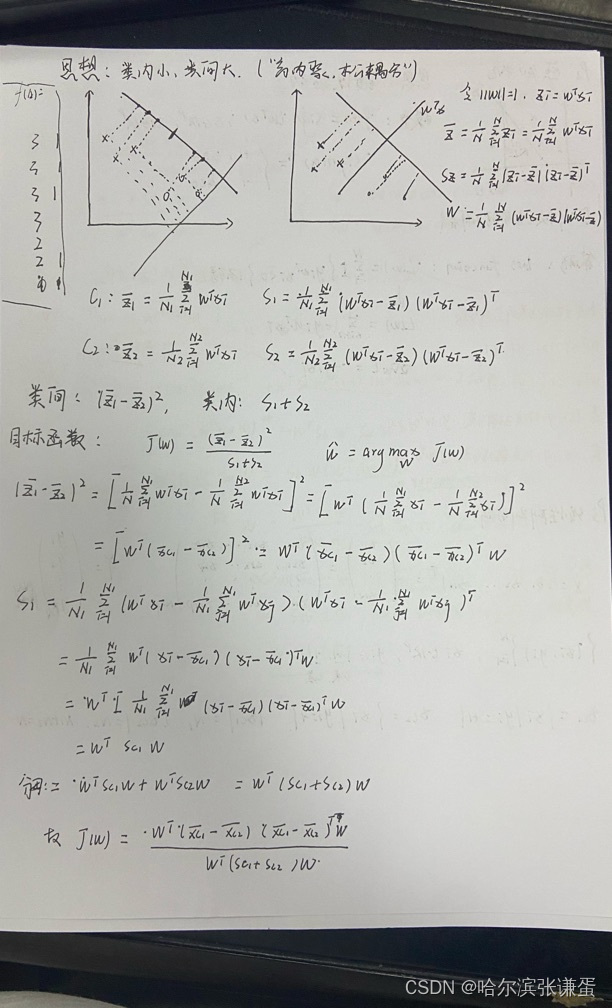 思想：类内小，类间大．（“高内聚，松耦合”）
f(Δ)=
3 1
3 1
3 1
3
2
2 1
x
x
x
o
o
o
x
x
wᵀx
W
令 ||w||=1. zi=wᵀxi
z̄ = 1/N Σ_{i=1}^{N} zi = 1/N Σ_{i=1}^{N} wᵀxi
Sz = 1/N Σ_{i=1}^{N} (zi-z̄)(zi-z̄)ᵀ
= 1/N Σ_{i=1}^{N} (wᵀxi-z̄)(wᵀxi-z̄)
C1: z̄1 = 1/N1 Σ_{i=1}^{N1} wᵀxi S1 = 1/N1 Σ_{i=1}^{N1} (wᵀxi-z̄1)(wᵀxi-z̄1)ᵀ
C2: z̄2 = 1/N2 Σ_{i=1}^{N2} wᵀxi S2 = 1/N2 Σ_{i=1}^{N2} (wᵀxi-z̄2)(wᵀxi-z̄2)ᵀ
类间：(z̄1-z̄2)², 类内：S1+S2
目标函数： J(w) = (z̄1-z̄2)² / (S1+S2) ŵ = argmax_w J(w)
(z̄1-z̄2)² = [1/N Σ_{i=1}^{N1} wᵀxi - 1/N Σ_{i=1}^{N2} wᵀxi]² = [wᵀ(1/N Σ_{i=1}^{N1} xi - 1/N Σ_{i=1}^{N2} xi)]²
= [wᵀ(x̄c1-x̄c2)]² = wᵀ(x̄c1-x̄c2)(x̄c1-x̄c2)ᵀ w
S1 = 1/N1 Σ_{i=1}^{N1} (wᵀxi - 1/N1 Σ_{j=1}^{N1} wᵀxj)(wᵀxi - 1/N1 Σ_{j=1}^{N1} wᵀxj)ᵀ
= 1/N1 Σ_{i=1}^{N1} wᵀ(xi-x̄c1)(xi-x̄c1)ᵀw
= wᵀ[1/N1 Σ_{i=1}^{N1} (xi-x̄c1)(xi-x̄c1)ᵀ w
= wᵀ Sc1 w
= wᵀSc1w + wᵀSc2w = wᵀ(Sc1+Sc2)w
故 J(w) = wᵀ(x̄c1-x̄c2)(x̄c1-x̄c2)ᵀw / wᵀ(Sc1+Sc2)w
CSDN @哈尔滨张谦蛋